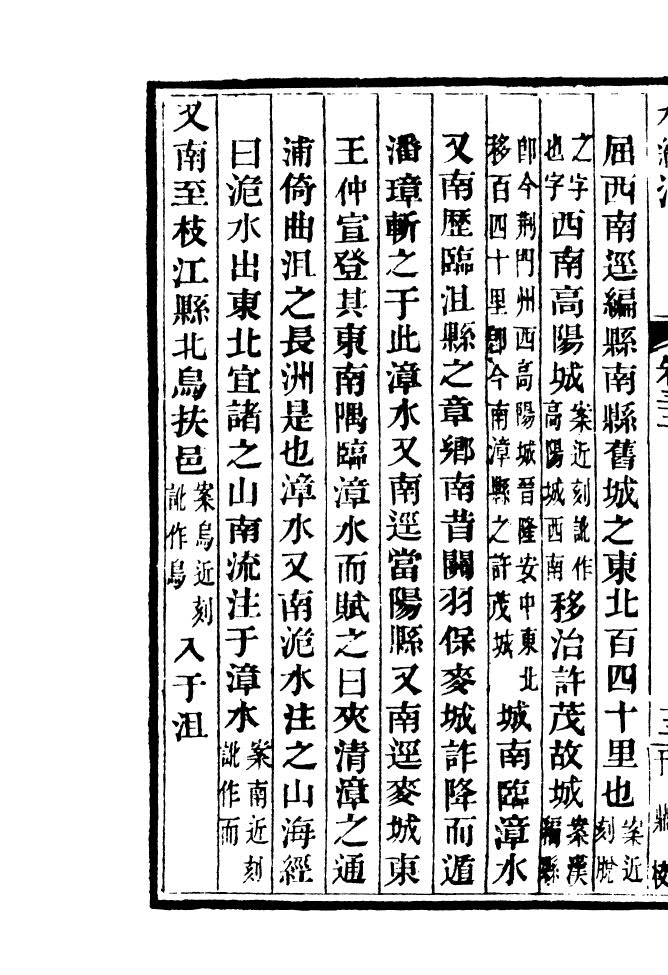 屈西南逕編縣南縣舊城之東北百四十里也案近刻脫
之字也字西南高陽城案近刻訛作高陽城西南移治許茂故城案漢編縣
即今荆門州西高陽城晉隆安中東北移百四十里即今南漳縣之許茂城城南臨漳水
又南歷臨沮縣之章鄉南昔關羽保麥城詐降而遁
潘璋斬之于此漳水又南逕當陽縣又南逕麥城東
王仲宣登其東南隅臨漳水而賦之曰夾清漳之通
浦倚曲沮之長洲是也漳水又南洈水注之山海經
曰洈水出東北宜諸之山南流注于漳水案南近刻訛作而
又南至枝江縣北烏扶邑案烏近刻訛作鳥入于沮